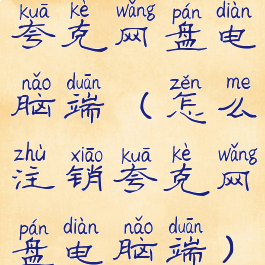 kuā kè wǎng pán diàn
夸克网盘电
nǎo duān zěn me
脑端（怎么
zhù xiāo kuā kè wǎng
注销夸克网
pán diàn nǎo duān
盘电脑端）